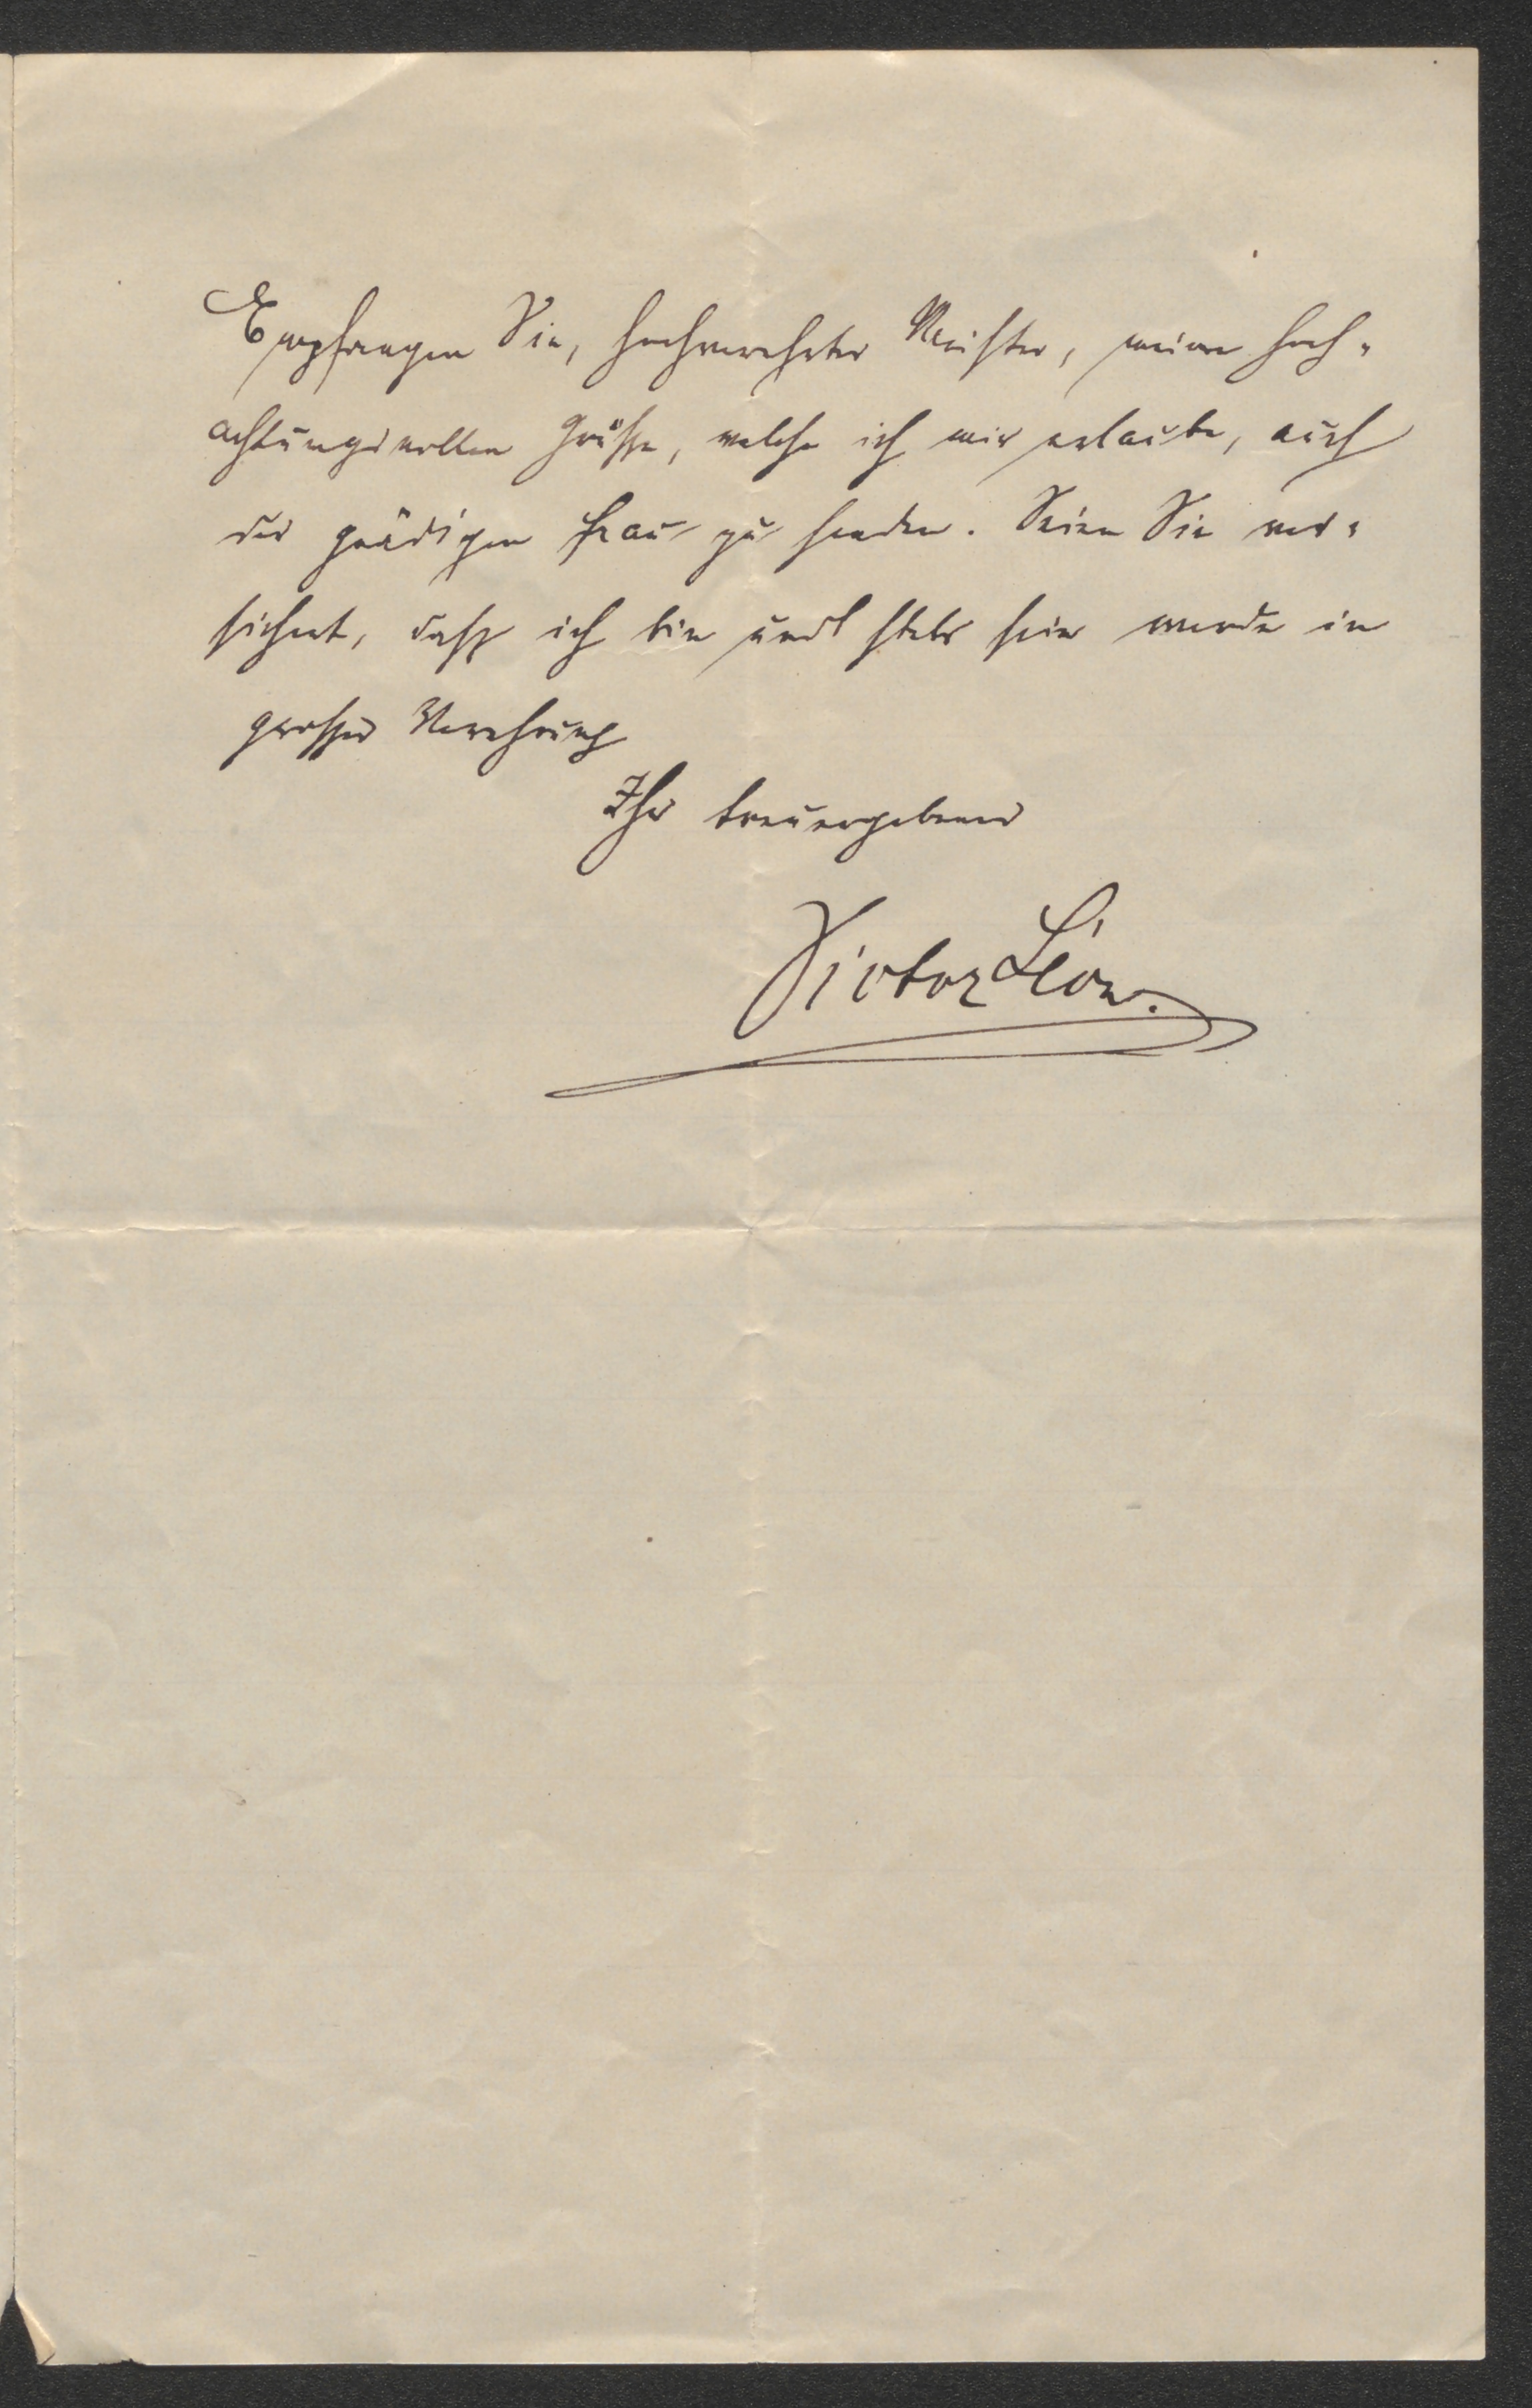 Empfangen Sie, hochverehrter Meister, meine hoch-
achtungsvollen Grüße, welche ich mir erlaube, auch
der gnädigen Frau zu senden. Seien Sie ver-
sichert, dass ich bin und stets sein werde in
grosser Verehrung
Ihr treuergebener
Victor Léon.